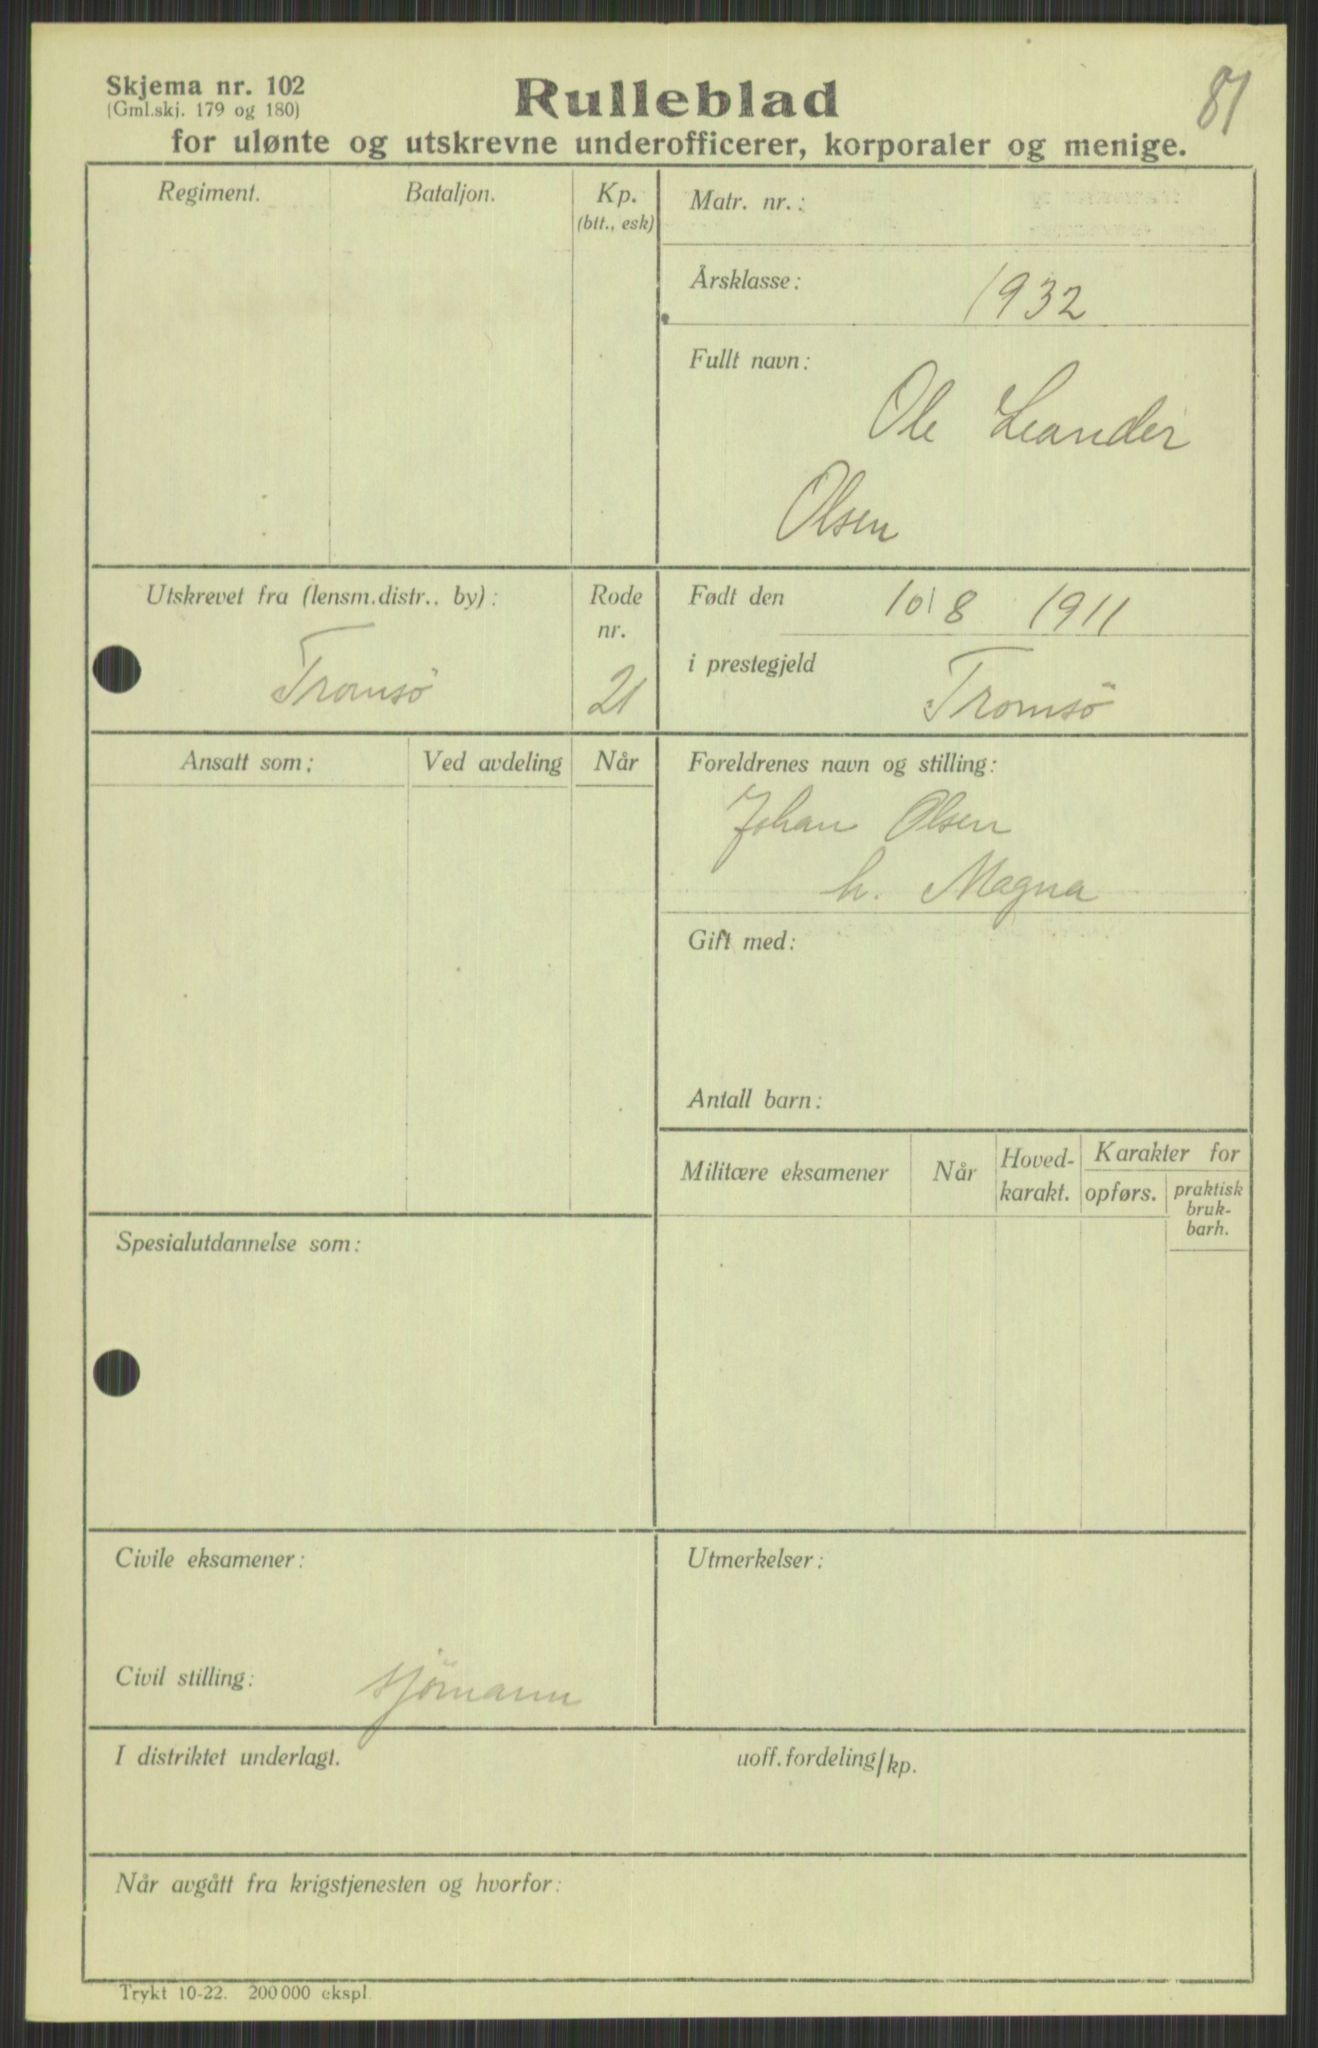 Skjema nr. 102
(Gml.skj. 179 og 180)
Rulleblad
81
for ulønte og utskrevne underofficerer, korporaler og menige.
Regiment.
Bataljon.
Kp.
(btt., esk)
Matr. nr.:
Årsklasse: 1932
Fullt navn:
Ole Leander
Olsen
Utskrevet fra (lensm.distr.. by):
Tromsö
Rode
nr.
21
Født den 10/8 1911
i prestegjeld Tromsö
Ansatt som:
Ved avdeling
Når
Foreldrenes navn og stilling:
Johan Olsen
h. Magna
Gift med:
Antall barn:
Militære eksamener
Når
Hoved-
karakt.
Karakter for
opførs.
praktisk
bruk-
barh.
Spesialutdannelse som:
Civile eksamener:
Utmerkelser:
Civil stilling: sjömann
I distriktet underlagt.
uoff.fordeling/kp.
Når avgått fra krigstjenesten og hvorfor:
Trykt 10-22. 200 000 ekspl.